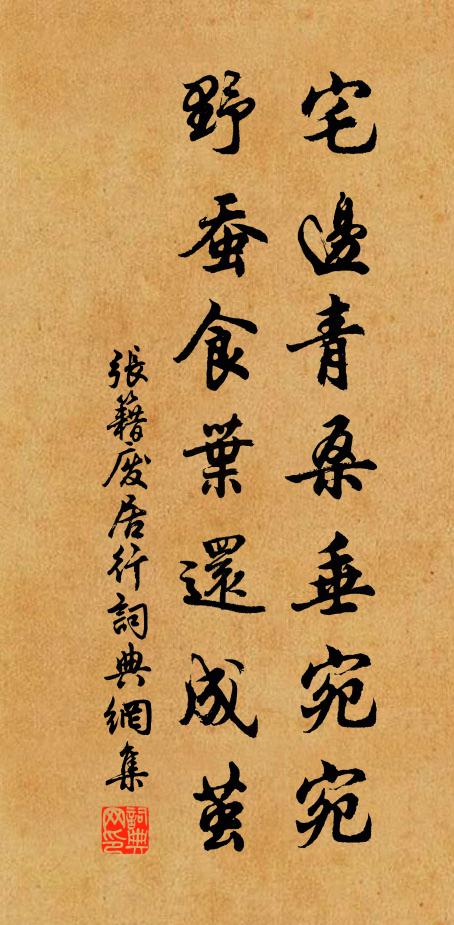 宅邊青桑垂宛宛
野蚕食葉還成茧
張籍廢居行詞典網集
詞典网印